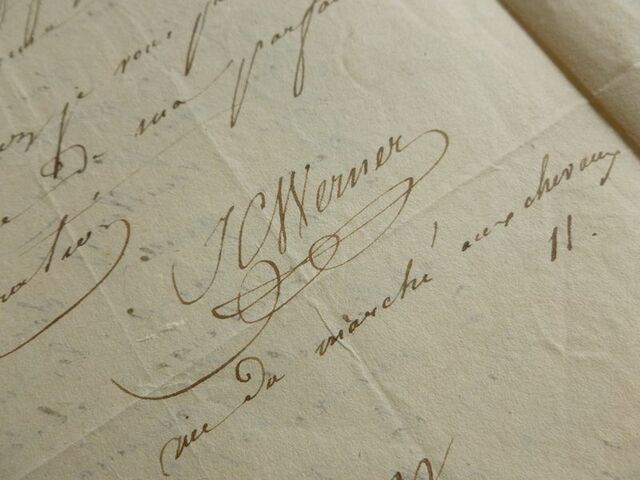 je vous
de ma parfai
ration
JCWerner
rue du marché aux chevaux
11.